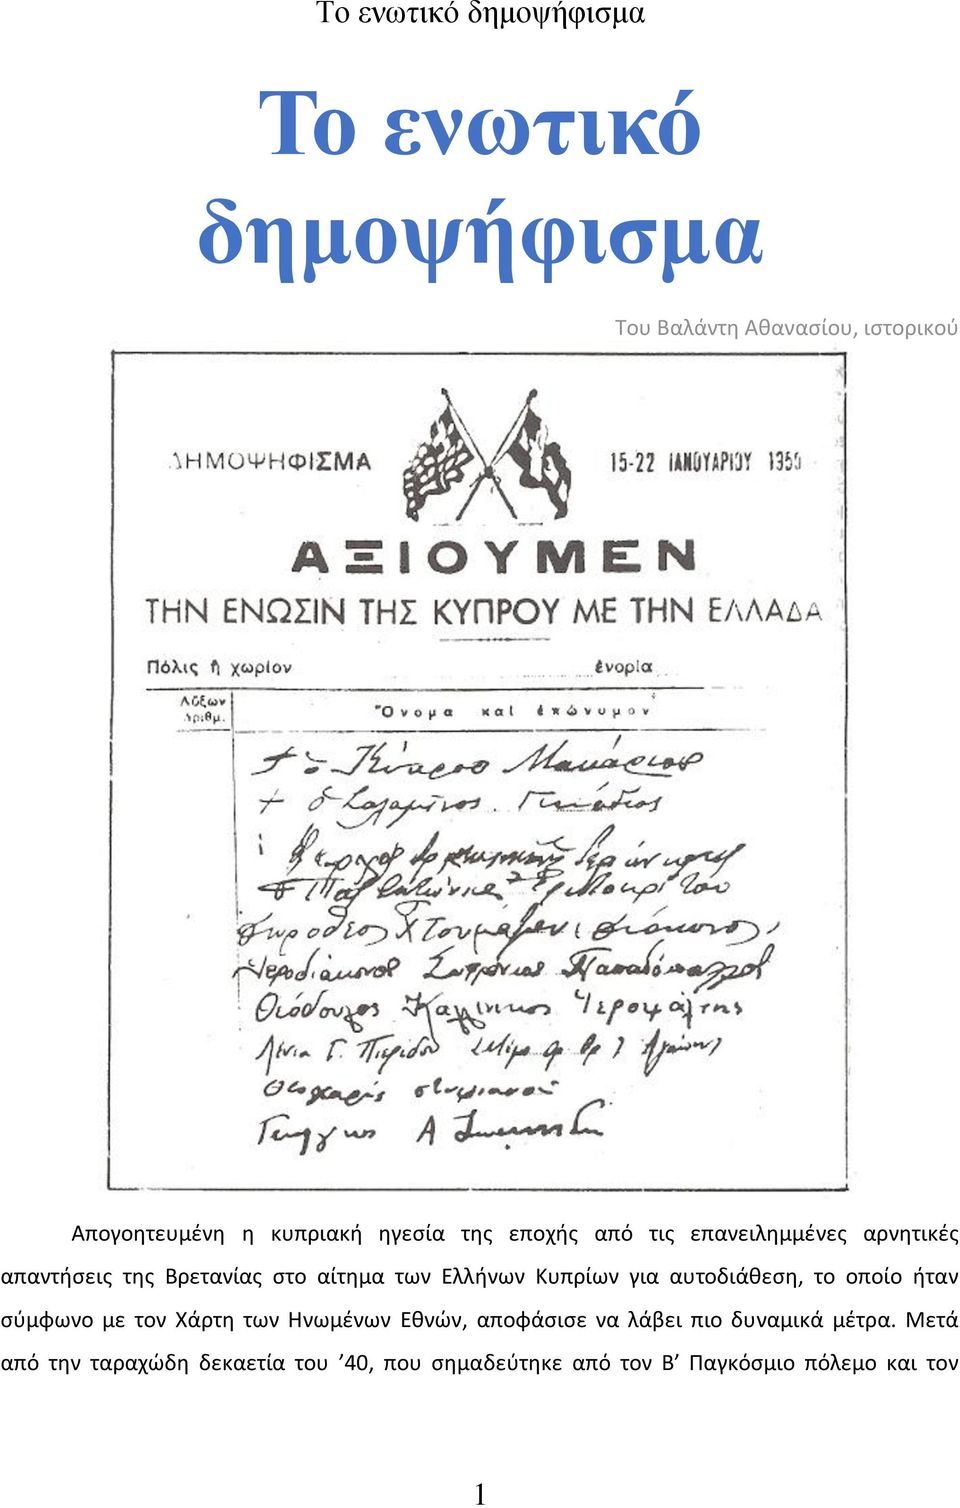 Το ενωτικό δημοψήφισμα
Το ενωτικό
δημοψήφισμα
Του Βαλάντη Αθανασίου, ιστορικού
ΔΗΜΟΨΗΦΙΣΜΑ 15-22 ΙΑΝΟΥΑΡΙΟΥ 1950
ΑΞΙΟΥΜΕΝ
ΤΗΝ ΕΝΩΣΙΝ ΤΗΣ ΚΥΠΡΟΥ ΜΕ ΤΗΝ ΕΛΛΑΔΑ
Πόλις ἢ χωρίον ἐνορία
Αὔξων Ἀριθμ. Ὄνομα καὶ ἐπώνυμον
+ ὁ Κύπρου Μακάριος
+ ὁ Σαλαμῖνος Γεννάδιος
Ἱεροδιάκονος Σωφρόνιος
Θεόδουλος Καλλίνικος Ἱεροψάλτης
Θεοχάρης
Γεώργιος Α
Απογοητευμένη η κυπριακή ηγεσία της εποχής από τις επανειλημμένες αρνητικές
απαντήσεις της Βρετανίας στο αίτημα των Ελλήνων Κυπρίων για αυτοδιάθεση, το οποίο ήταν
σύμφωνο με τον Χάρτη των Ηνωμένων Εθνών, αποφάσισε να λάβει πιο δυναμικά μέτρα. Μετά
από την ταραχώδη δεκαετία του ’40, που σημαδεύτηκε από τον Β’ Παγκόσμιο πόλεμο και τον
1